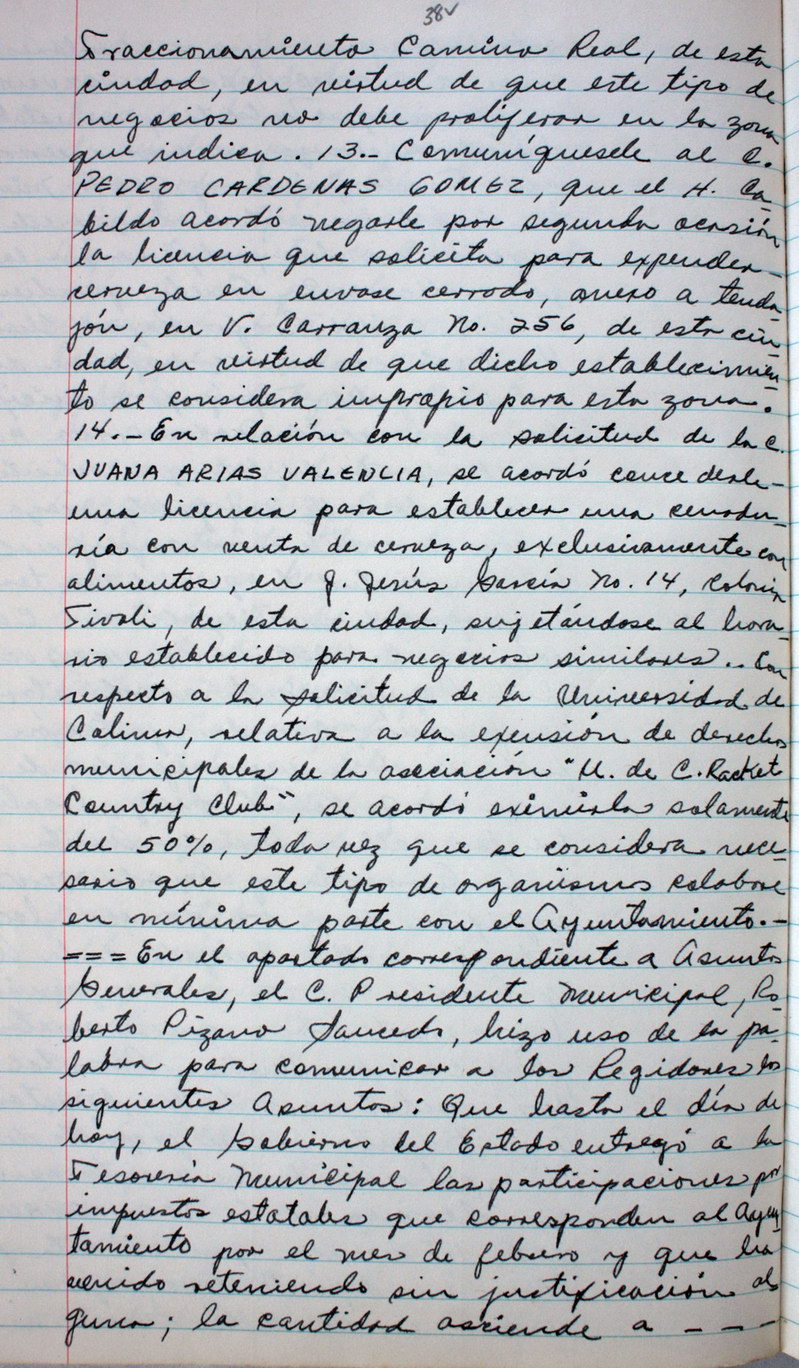 38v
Fraccionamiento Camino Real, de esta
ciudad, en virtud de que este tipo de
negocios no debe proliferar en la zona
que indica. 13.- Comuníquesele al C.
PEDRO CARDENAS GOMEZ, que el H. Ca-
bildo acordó negarle por segunda ocasión
la licencia que solicita para expender-
cerveza en envase cerrado, anexo a tenda-
jón, en V. Carranza No. 256, de esta ciu-
dad, en virtud de que dicho establecimien-
to se considera impropio para esta zona.
14.- En relación con la solicitud de la C.
JUANA ARIAS VALENCIA, se acordó concederle-
una licencia para establecer una cenadu-
ría con venta de cerveza, exclusivamente con
alimentos, en J. Jesús García No. 14, colonia
Tivoli, de esta ciudad, sujetándose al hora-
rio establecido para negocios similares.. Con
respecto a la solicitud de la Universidad de
Colima, relativa a la exensión de derechos
municipales de la asociación "U. de C. Racket
Country Club", se acordó eximirla solamente
del 50%, toda vez que se considera nece-
sario que este tipo de organismos colabore
en mínima parte con el Ayuntamiento.-
=== En el apartado correspondiente a Asuntos
Generales, el C. Presidente Municipal, Ro-
berto Pizano Saucedo, hizo uso de la pa-
labra para comunicar a los Regidores los
siguientes asuntos: Que hasta el día de
hoy, el Gobierno del Estado entregó a la
Tesorería Municipal las participaciones por
impuestos estatales que corresponden al Ayun-
tamiento por el mes de febrero y que ha
venido reteniendo sin justificación al-
guna; la cantidad asciende a - - -